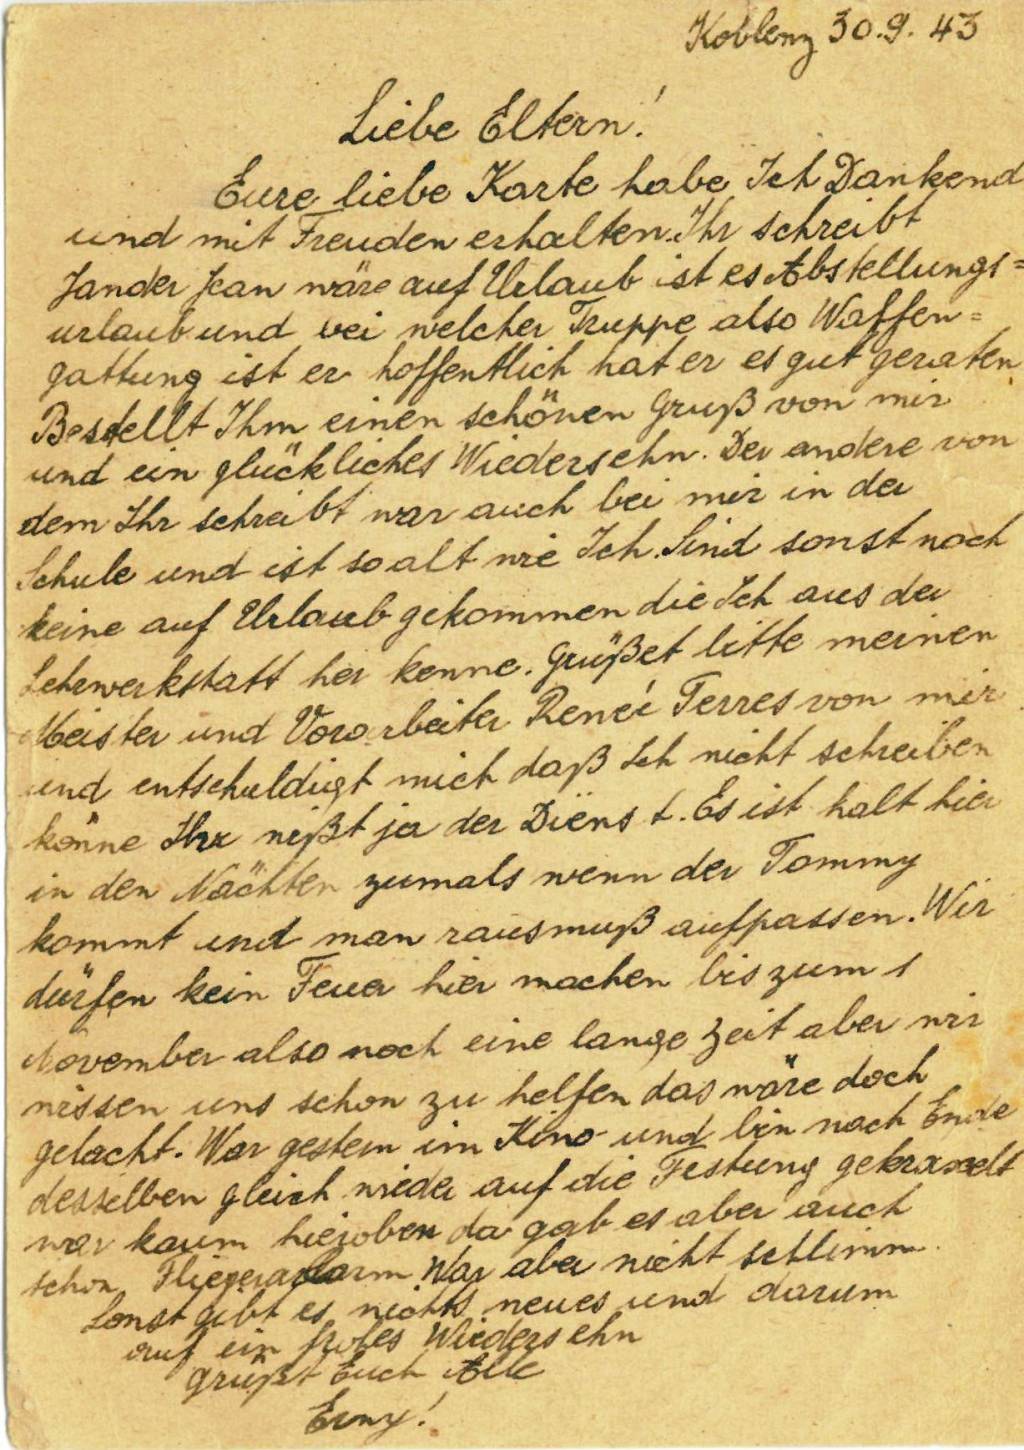 Koblenz 30.9.43
Liebe Eltern!
Eure liebe Karte habe Ich Dankend
und mit Freuden erhalten. Ihr schreibt
Jander Jean wäre auf Urlaub ist es Abstellungs=
urlaub und bei welcher Truppe also Waffen=
gattung ist er hoffentlich hat er es gut geraten
Bestellt Ihm einen schönen Gruß von mir
und ein glückliches Wiedersehn. Der andere von
dem Ihr schreibt war auch bei mir in der
Schule und ist so alt wie Ich. Sind sonst noch
keine auf Urlaub gekommen die Ich aus der
Lehrwerkstatt her kenne. Grüßet bitte meinen
Meister und Vorarbeiter Reneé Terres von mir
und entschuldigt mich daß Ich nicht schreiben
könne Ihr wißt ja der Dienst. Es ist halt hier
in den Nächten zumals wenn der Tommy
kommt und man rausmuß aufpassen. Wir
dürfen kein Feuer hier machen bis zum 1
November also noch eine lange Zeit aber wir
wissen uns schon zu helfen das wäre doch
gelacht. War gestern im Kino und bin nach Ende
desselben gleich wieder auf die Festung gekraxelt
war kaum hieroben da gab es aber auch
schon Fliegeralarm War aber nicht schlimm.
Sonst gibt es nichts neues und darum
auf ein frohes Wiedersehn
grüßt Euch Alle
Erny!